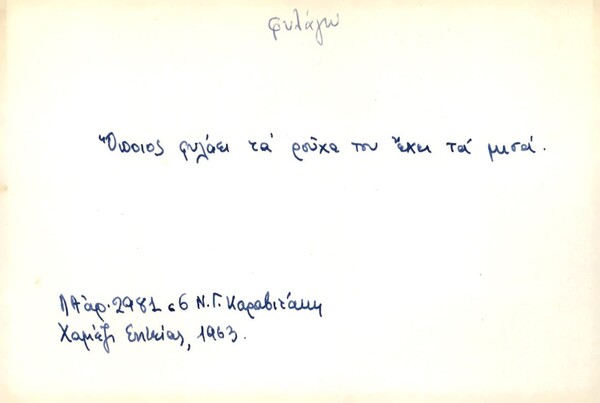 φυλάγω
Ὅποιος φυλάει τά ροῦχα του ἔχει τά μισά.
ΛΑ ἀρ. 2981 σ 6 Ν. Γ. Καραβιτάκη
Χαμέζι Σητείας, 1963.